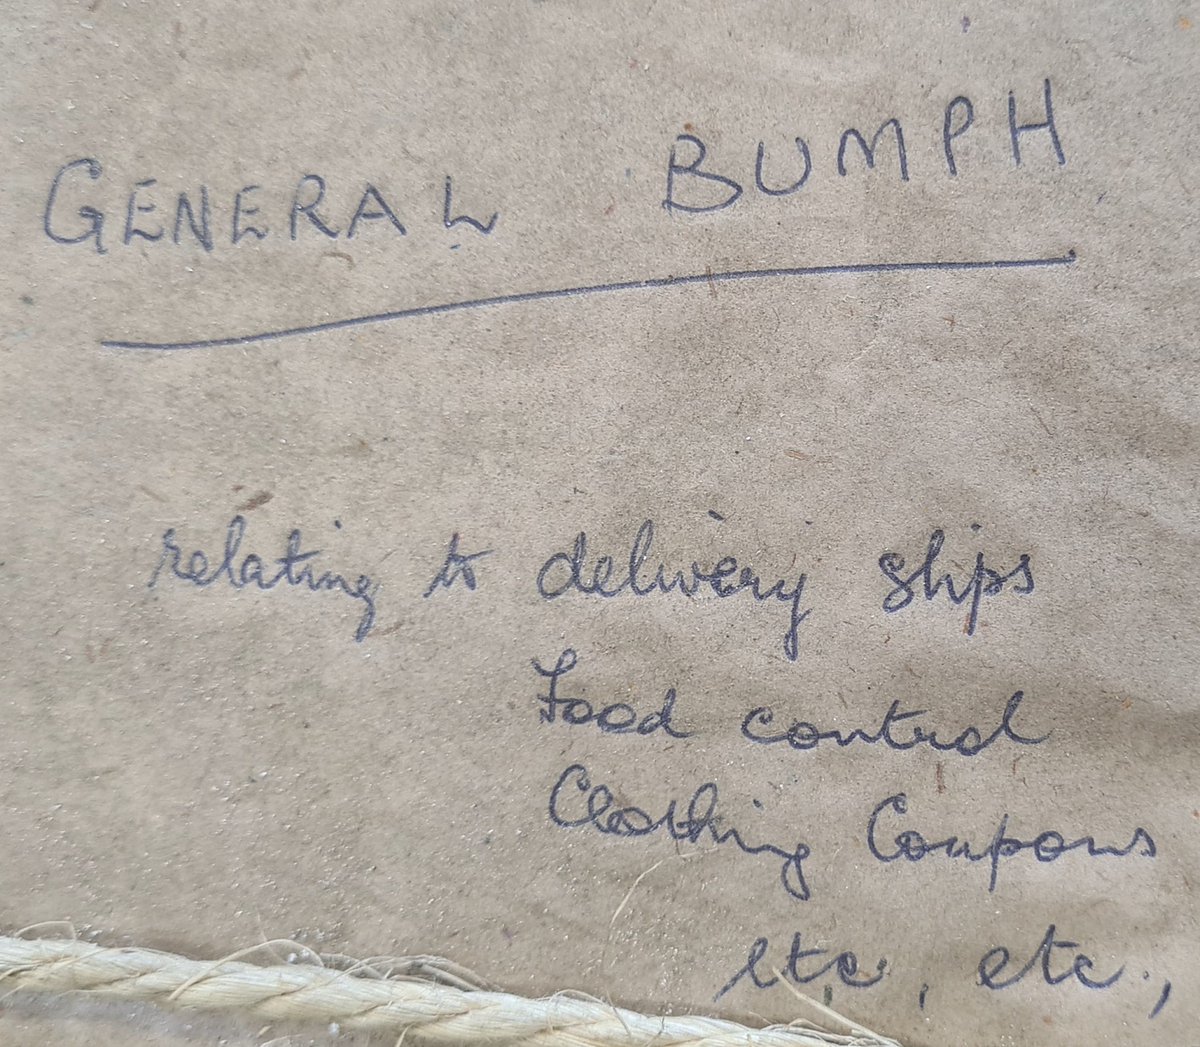 GENERAL BUMPH
relating to delivery slips
Food control
Clothing Coupons
etc, etc.,